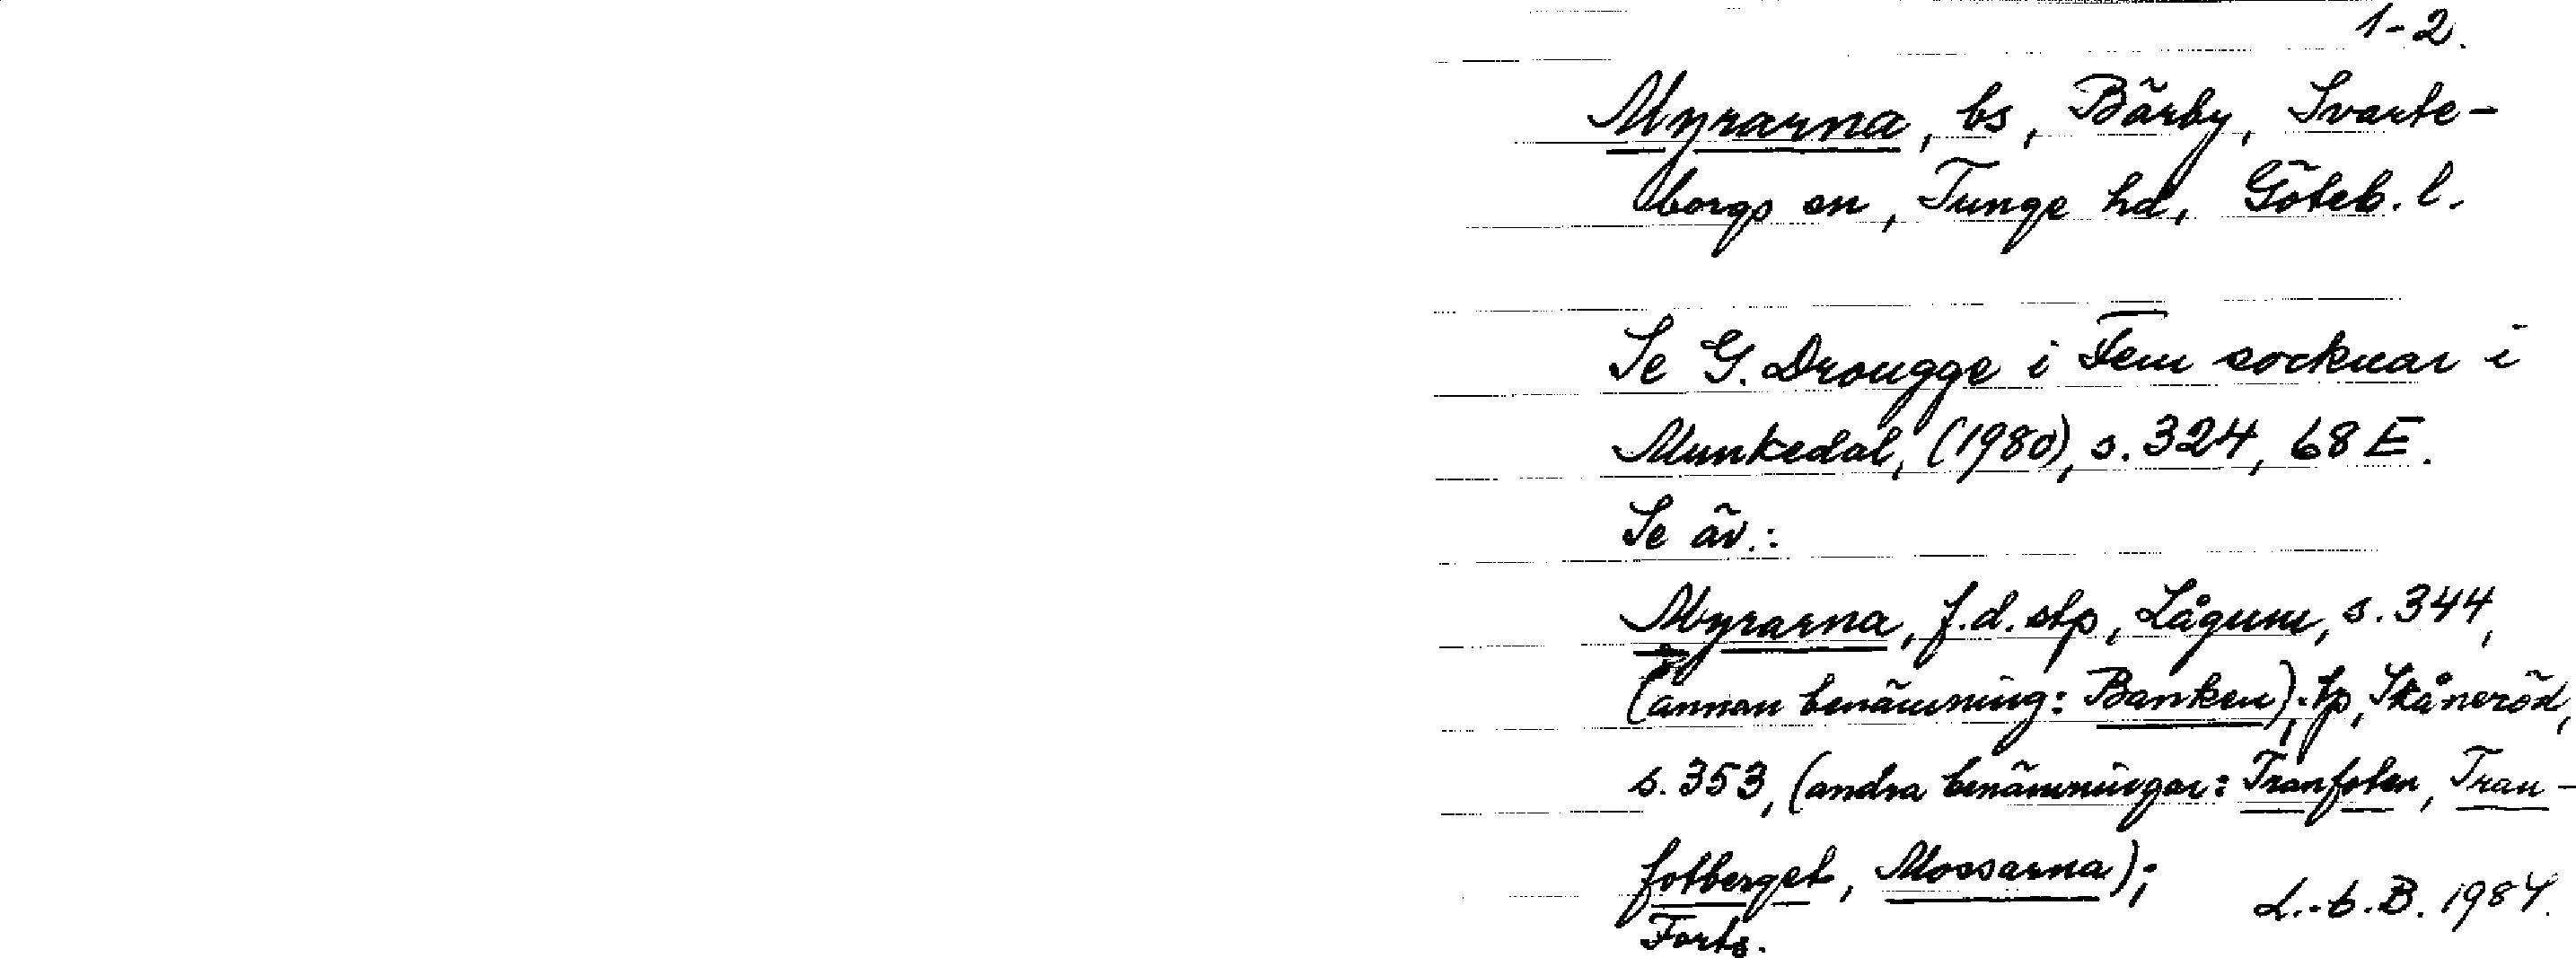 1-2.
Myrarna, bs, Bärby, Svarte-
borgs sn, Tunge hd, Göteb. l.
Se G. Drougge i Fem socknar i
Munkedal, (1980), s. 324, 68 E.
Se äv.:
Myrarna, f.d. stp, Lågum, s. 344,
(annan benämning: Banken); tp, Skåneröd,
s. 353, (andra benämningar: Tranfoten, Tran-
fotberget, Mossarna);
Forts.
L.-b.B. 1984.